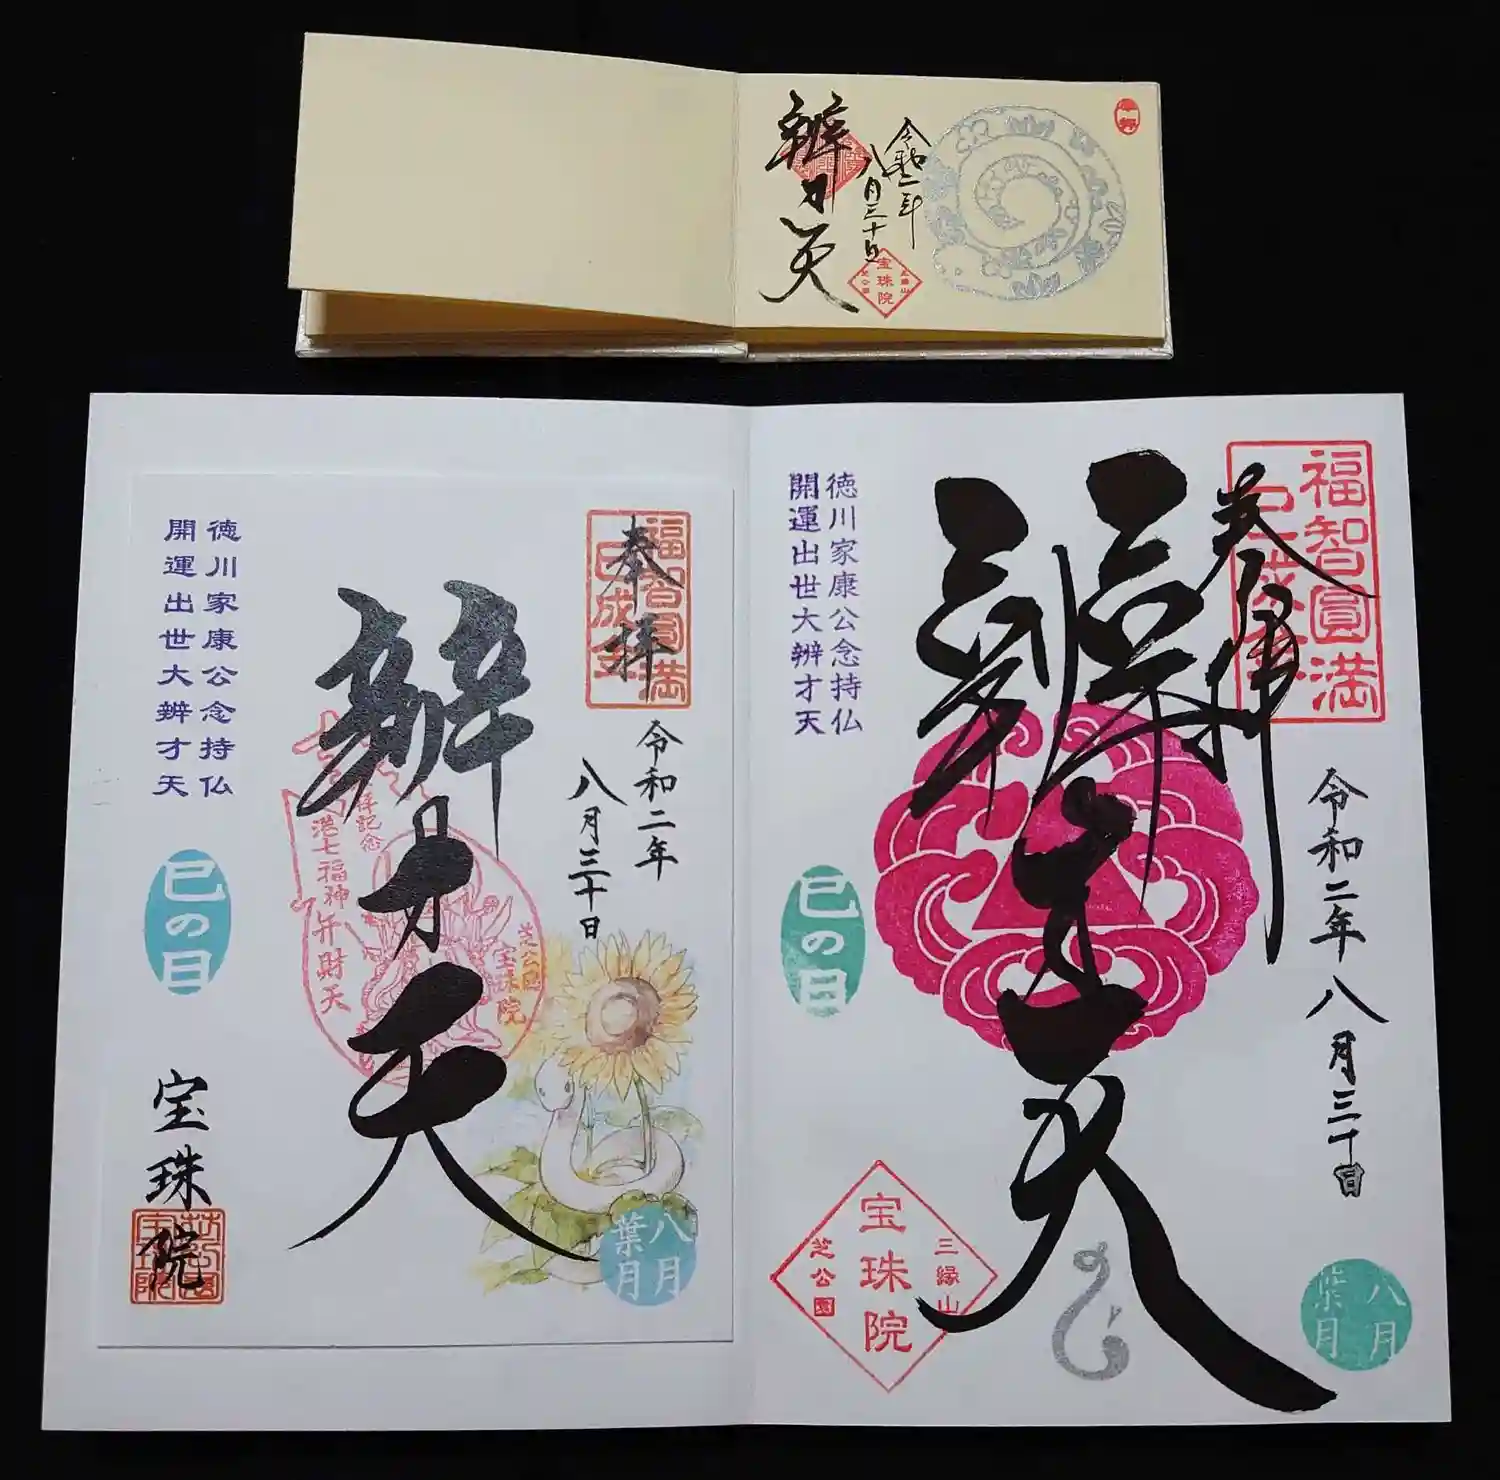 辨才天
令和二年
八月三十日
宝珠院
奉拝
福智圓満
巳成金
令和二年
八月三十日
辨才天
拝記念
港七福神
弁財天
芝公園
宝珠院
徳川家康公念持仏
開運出世大辨才天
巳の日
宝珠院
八月
葉月
奉拝
福智圓満
令和二年八月三十日
辨才天
徳川家康公念持仏
開運出世大辨才天
巳の日
三縁山
宝珠院
芝公園
八月
葉月